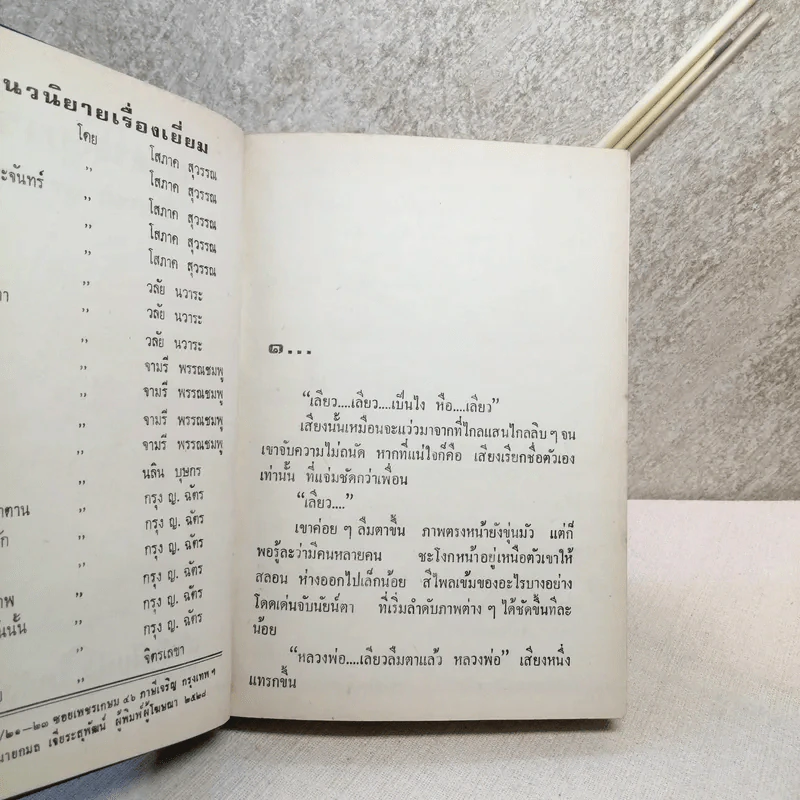 นวนิยายเรื่องเยี่ยม
โดย โสภาค สุวรรณ
ะจันทร์ ” โสภาค สุวรรณ
” โสภาค สุวรรณ
” โสภาค สุวรรณ
” โสภาค สุวรรณ
” วลัย นวาระ
” วลัย นวาระ
” วลัย นวาระ
” จามรี พรรณชมพู
” จามรี พรรณชมพู
” จามรี พรรณชมพู
” จามรี พรรณชมพู
” นลิน บุษกร
าตาน ” กรุง ญ. ฉัตร
” กรุง ญ. ฉัตร
” กรุง ญ. ฉัตร
” กรุง ญ. ฉัตร
าพ ” กรุง ญ. ฉัตร
นนั้น ” กรุง ญ. ฉัตร
” จิตรเลขา
/๒๑—๒๓ ซอยเพชรเกษม ๔๖ ภาษีเจริญ กรุงเทพฯ
นายกมล เจียระสุพัฒน์ ผู้พิมพ์ผู้โฆษณา ๒๕๒๘
๑...
“เลียว....เลียว....เป็นไง หือ....เลียว”
เสียงนั้นเหมือนจะแว่วมาจากที่ไกลแสนไกลลิบ ๆ จน
เขาจับความไม่ถนัด หากที่แน่ใจก็คือ เสียงเรียกชื่อตัวเอง
เท่านั้น ที่แจ่มชัดกว่าเพื่อน
“เลียว....”
เขาค่อย ๆ ลืมตาขึ้น ภาพตรงหน้ายังขุ่นมัว แต่ก็
พอรู้ละว่ามีคนหลายคน ชะโงกหน้าอยู่เหนือตัวเขาให้
สลอน ห่างออกไปเล็กน้อย สีไพลเข้มของอะไรบางอย่าง
โดดเด่นจับนัยน์ตา ที่เริ่มลำดับภาพต่าง ๆ ได้ชัดขึ้นทีละ
น้อย
“หลวงพ่อ....เลียวลืมตาแล้ว หลวงพ่อ” เสียงหนึ่ง
แทรกขึ้น